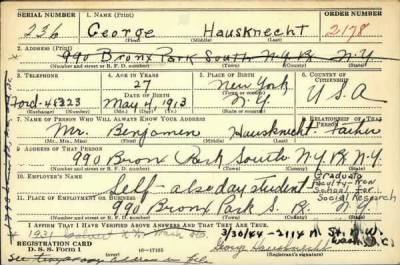 SERIAL NUMBER 1. NAME (Print) ORDER NUMBER
236 George Hausknecht 2178
(First) (Middle) (Last)
2. ADDRESS (Print)
990 Bronx Park South N.Y. Bx N.Y.
(Number and street or R. F. D. number) (Town) (County) (State)
3. TELEPHONE 4. AGE IN YEARS 5. PLACE OF BIRTH 6. COUNTRY OF CITIZENSHIP
27 New York
Ford-48323 DATE OF BIRTH N.Y. U.S.A
May 4, 1913
(Exchange) (Number) (Mo.) (Day) (Yr.) (State or country)
7. NAME OF PERSON WHO WILL ALWAYS KNOW YOUR ADDRESS 8. RELATIONSHIP OF THAT PERSON
Mr. Benjamin Hausknecht Father
(Mr., Mrs., Miss) (First) (Middle) (Last)
9. ADDRESS OF THAT PERSON
990 Bronx Park South N.Y. Bx N.Y.
(Number and street or R. F. D. number) (Town) (County) (State)
10. EMPLOYER'S NAME Graduate
Self- also day student Faculty-New
School for
11. PLACE OF EMPLOYMENT OR BUSINESS Social Research
990 Bronx Park S. Bx N.Y.
(Number and street or R. F. D. number) (Town) (County) (State)
I AFFIRM THAT I HAVE VERIFIED ABOVE ANSWERS AND THAT THEY ARE TRUE.
1931 3/30/44-2114 N St. N.W.
Wash D.C.
REGISTRATION CARD
D. S. S. Form 1 16-17105 George Hausknecht
(Registrant's signature)
See temporary address in file